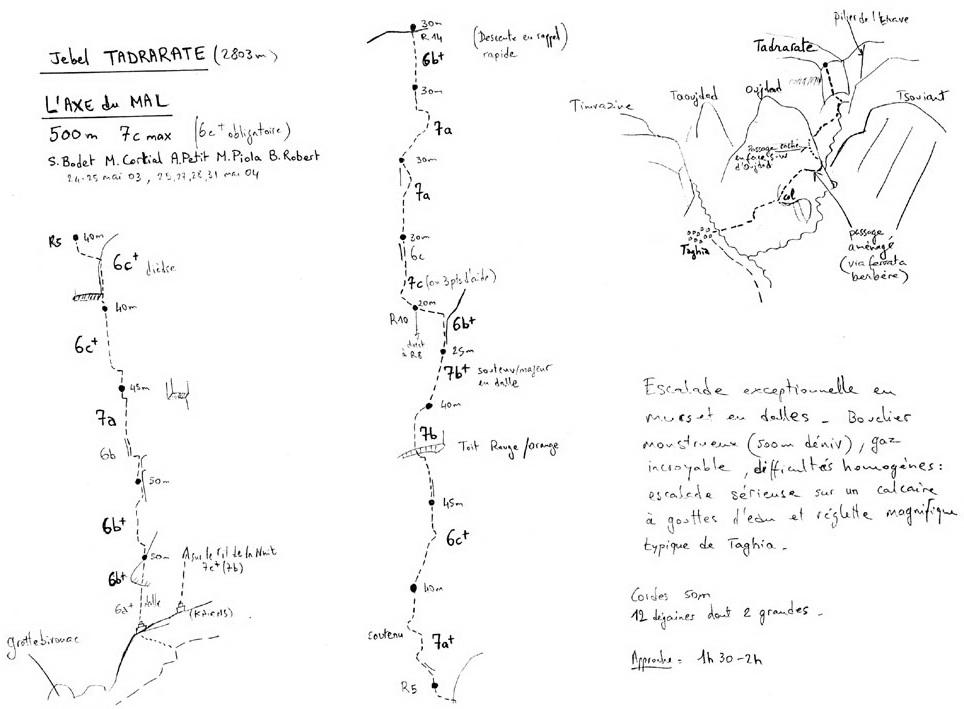 Jebel TADRARATE (2803m)
L'AXE du MAL
500m 7c max (6c+ obligatoire)
S. Bodet M. Cortial A. Petit M. Piola B. Robert
24-25 mai 03, 25,27,28,31 mai 04
R5 40m
6c+ dièdre
40m
6c+
45m
7a
6b
50m
6b+
50m
6b+
A sur le Fil de la Nuit
7c+ (7b)
6a+ dalle
(KAIRNS)
Grotte bivouac
30m
R14
(Descente en rappel)
rapide
6b+
30m
7a
30m
7a
20m
6c
7c (ou 3 pts d'aide)
20m
R10
6b+
direct
à R8
25m
7b+ soutenu/majeur
en dalle
40m
7b
Toit Rouge/orange
45m
6c+
40m
soutenu
7a+
R5
pilier de l'Ehrave
Tadrarate
Oujdad
Taoujdad
Timrazine
Tsouiant
Passage caché
en face S-W
d'Oujdad
col
Taghia
passage
aménagé
(via ferrata
berbère)
Escalade exceptionnelle en
murs et en dalles - Bouclier
monstrueux (500m déniv), gaz
incroyable, difficultés homogènes:
escalade sérieuse sur un calcaire
à gouttes d'eau et réglette magnifique
typique de Taghia -
Cordes 50m
12 dégaines dont 2 grandes -
Approche = 1h30-2h